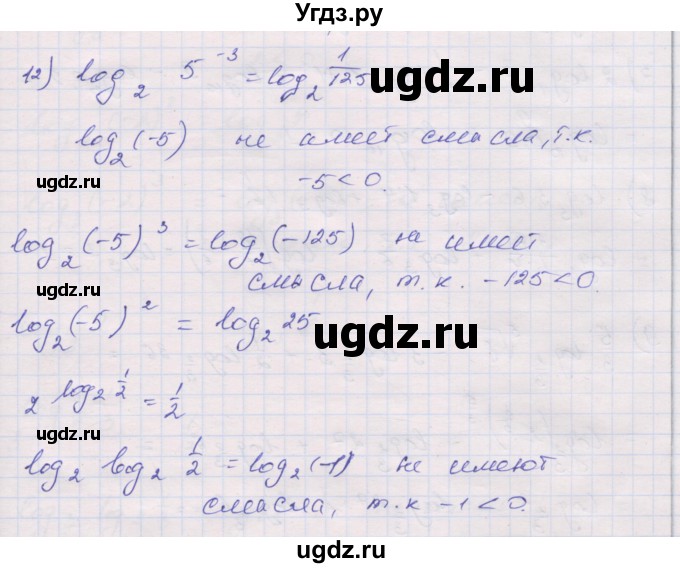 Угдз.ру
12) log₂ 5⁻³ = log₂ 1/125
ugdz.ru
log₂(-5) не имеет смысла, т.к.
ugdz.ru
-5 < 0.
log₂(-5)³ = log₂(-125) не имеет
ugdz.ru
смысла, т.к. -125 < 0.
log₂(-5)² = log₂ 25
ugdz.ru
2^(log₂ 1/2) = 1/2
ugdz.ru
log₂ log₂ 1/2 = log₂(-1) не имеют
ugdz.ru
смысла, т.к -1 < 0.
ugdz.ru